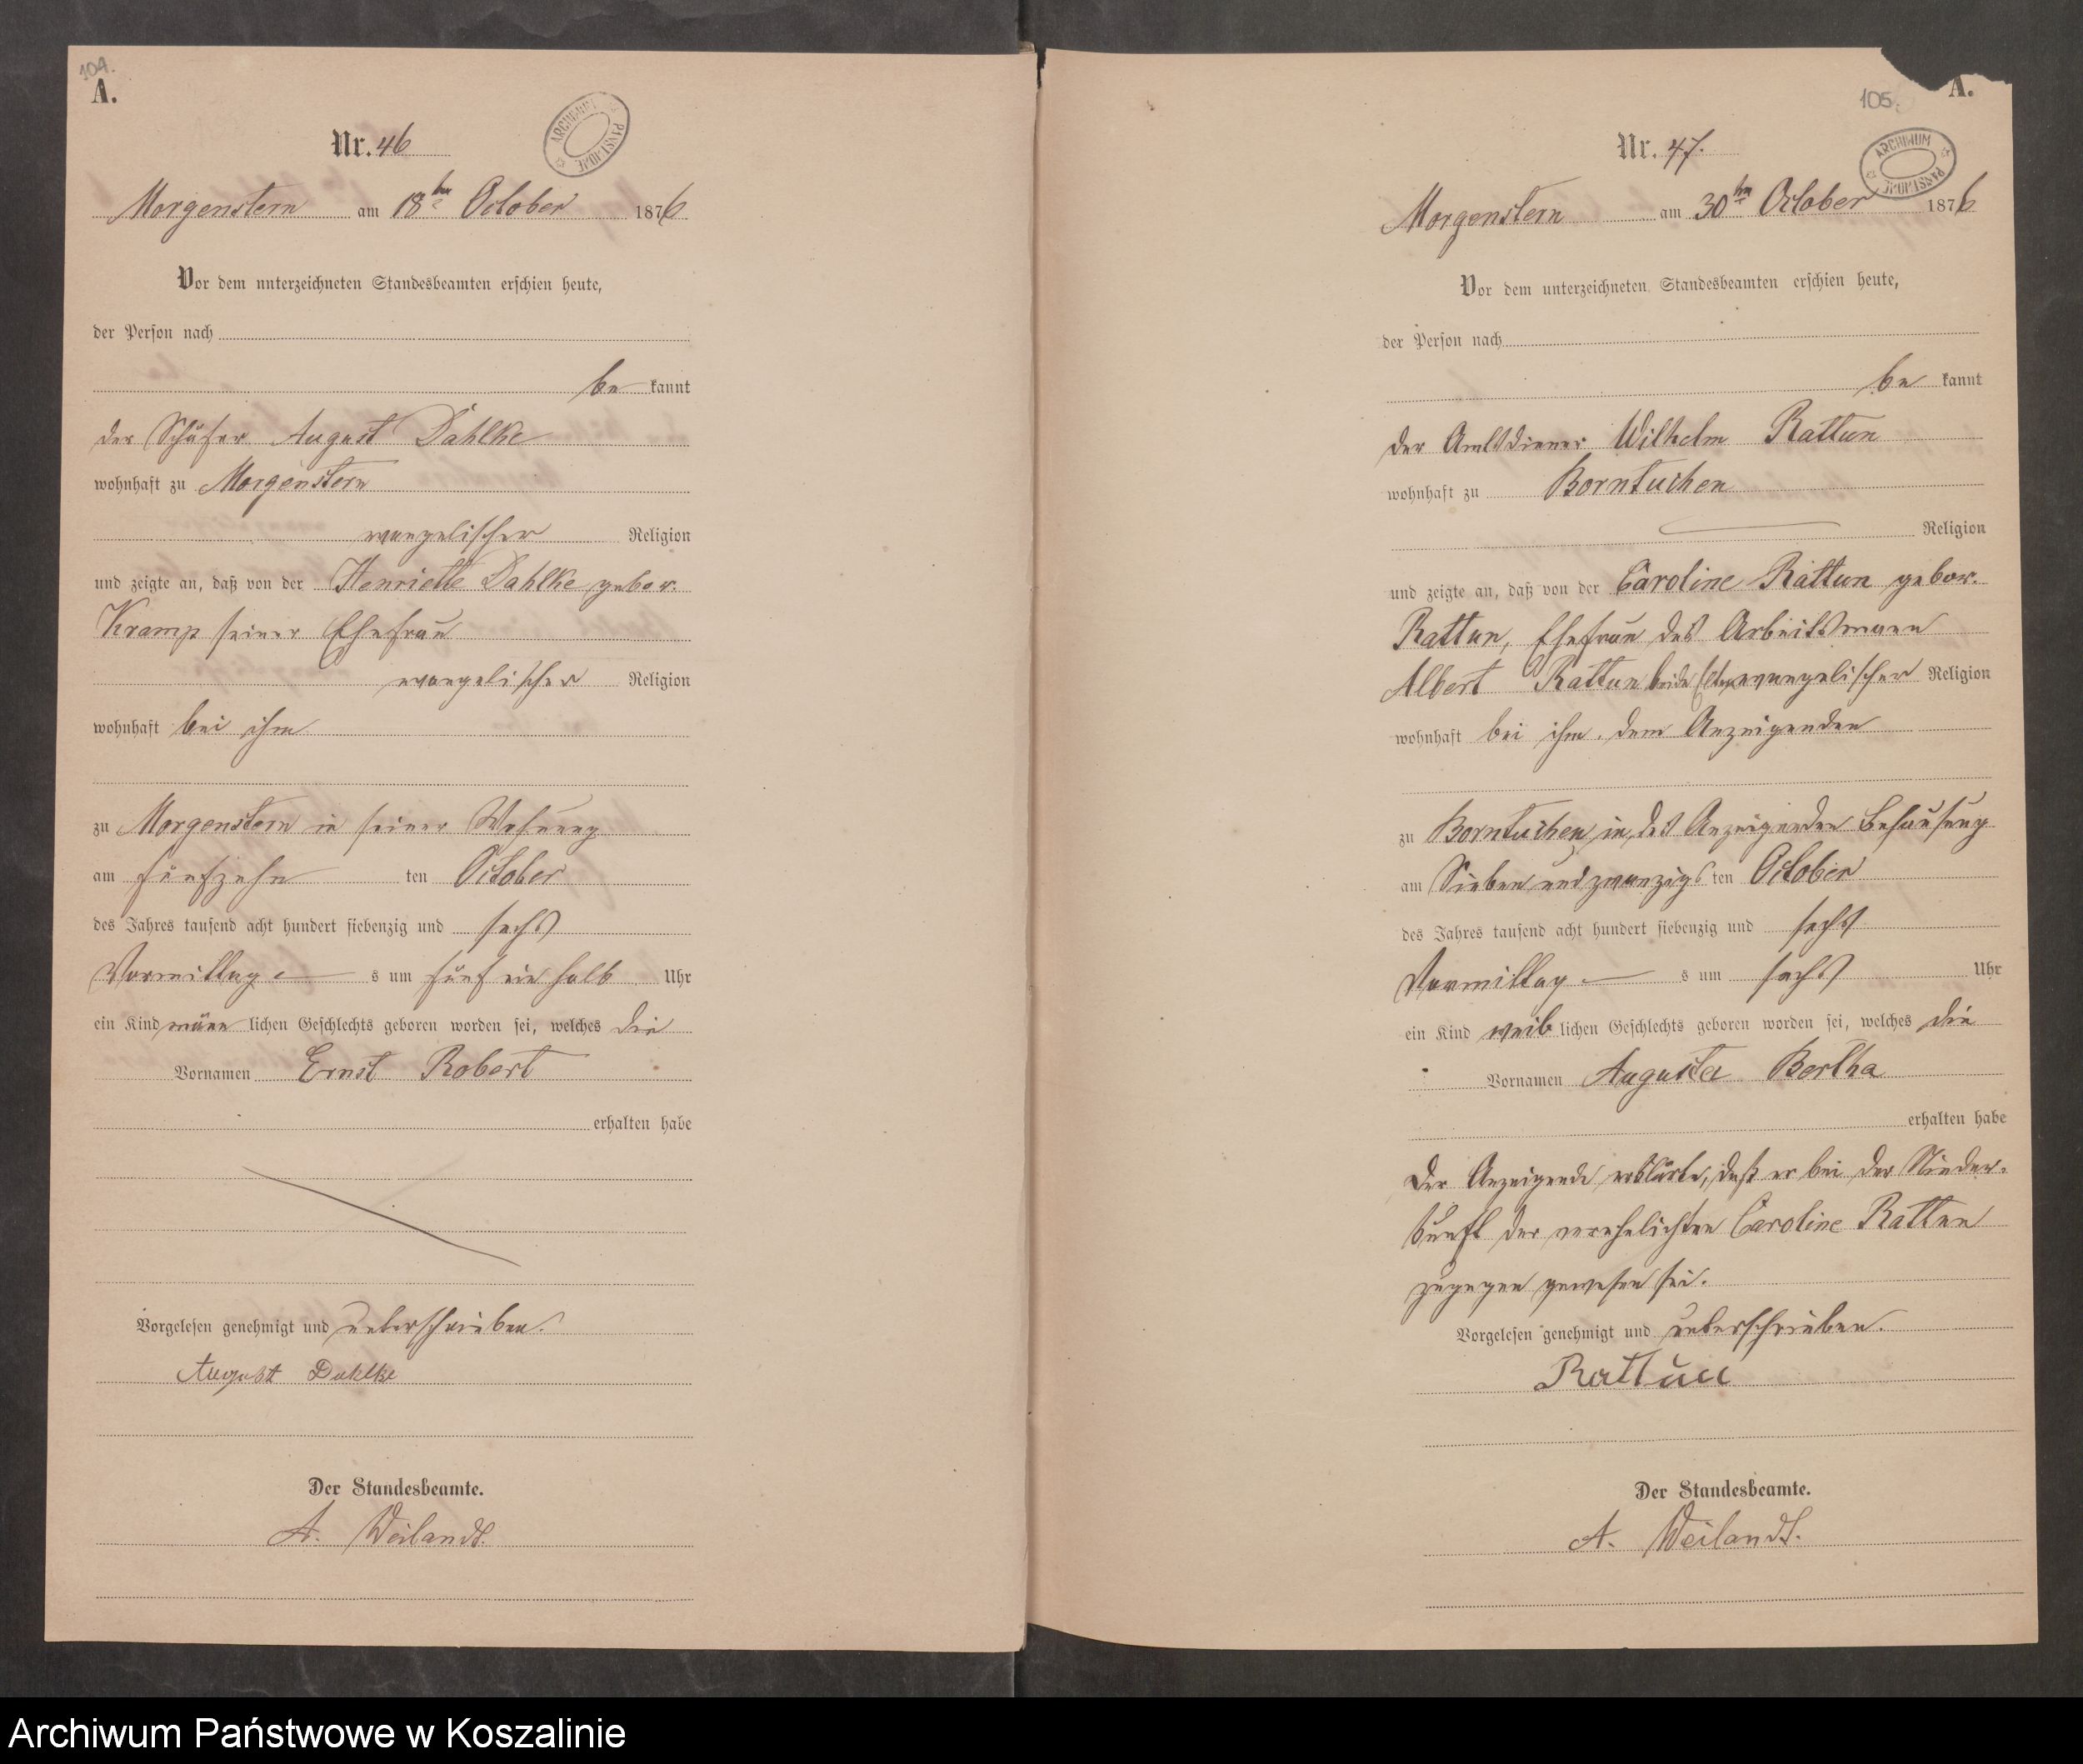 104.
A.
ARCHIWUM PAŃSTWOWE
Nr. 46
Morgenstern am 18ten October 1876
Vor dem unterzeichneten Standesbeamten erschien heute,
der Person nach
be kannt
der Schäfer August Dahlke
wohnhaft zu Morgenstern
evangelischer Religion
und zeigte an, daß von der Henriette Dahlke gebor.
Kramp seiner Ehefrau
evangelischer Religion
wohnhaft bei ihm
zu Morgenstern in seiner Wohnung
am fünfzehn ten October
des Jahres tausend acht hundert siebenzig und sechs
Vormittag s um fünf ein halb Uhr
ein Kind männ lichen Geschlechts geboren worden sei, welches die
Vornamen Ernst Robert
erhalten habe
Vorgelesen genehmigt und unterschrieben.
August Dahlke
Der Standesbeamte.
A. Weilandt.
105.
A.
ARCHIWUM PAŃSTWOWE
Nr. 47.
Morgenstern am 30ten October 1876
Vor dem unterzeichneten Standesbeamten erschien heute,
der Person nach
be kannt
der Amtsdiener Wilhelm Rattun
wohnhaft zu Borntuchen
Religion
und zeigte an, daß von der Caroline Rattun gebor.
Rattun, Ehefrau des Arbeitsmann
Albert Rattun beide evangelischer Religion
wohnhaft bei ihm, dem Anzeigenden
zu Borntuchen, in des Anzeigenden Behausung
am Sieben und zwanzigs ten October
des Jahres tausend acht hundert siebenzig und sechs
Vormittag s um sechs Uhr
ein Kind weib lichen Geschlechts geboren worden sei, welches die
Vornamen Auguste Bertha
erhalten habe
Der Anzeigende erklärte, daß er bei der Nieder-
kunft der verehelichten Caroline Rattun
zugegen gewesen sei.
Vorgelesen genehmigt und unterschrieben.
Rattun
Der Standesbeamte.
A. Weilandt.
Archiwum Państwowe w Koszalinie